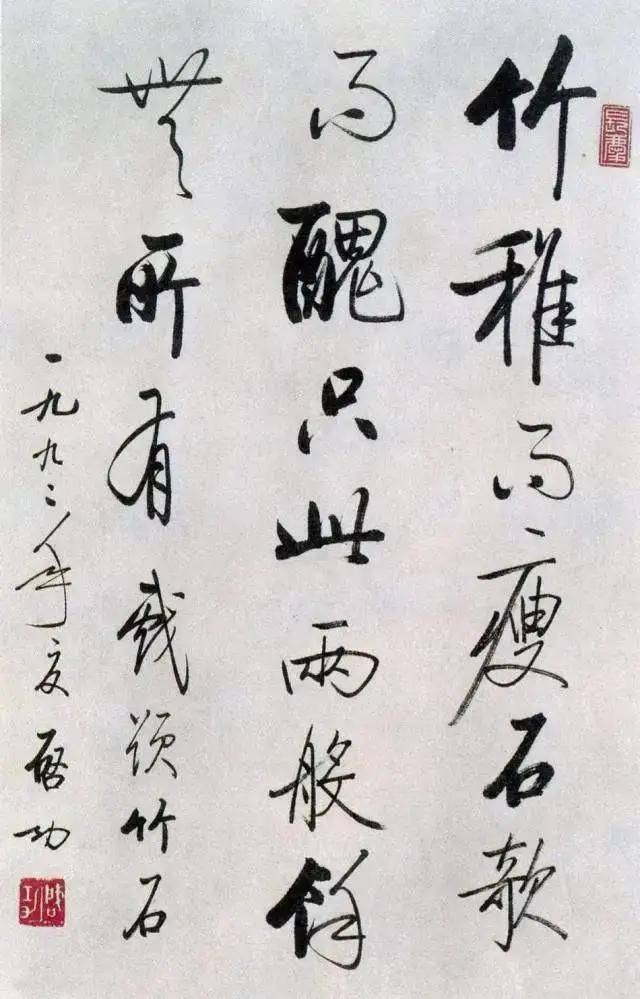 長慶
竹稚而瘦石欹
而醜只此兩般餘
無所有戲題竹石
一九九二年夏啓功
啓功